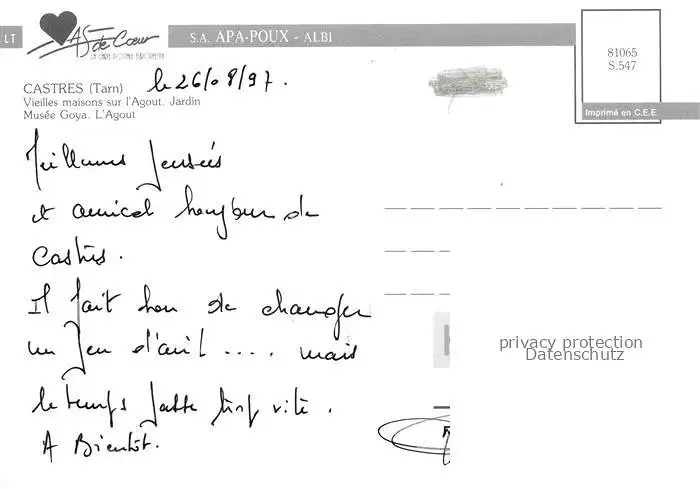 LT
As de Cœur
LA CARTE POSTALE EUROPEENNE
S.A. APA-POUX - ALBI
81065
S.547
Imprimé en C.E.E.
CASTRES (Tarn)
Vieilles maisons sur l'Agout. Jardin
Musée Goya. L'Agout
le 26/08/97.
Meilleures pensées
et amical bonjour de
Castres.
Il fait bon de changer
un peu d'air .... mais
le temps passe trop vite.
A Bientôt.
privacy protection
Datenschutz